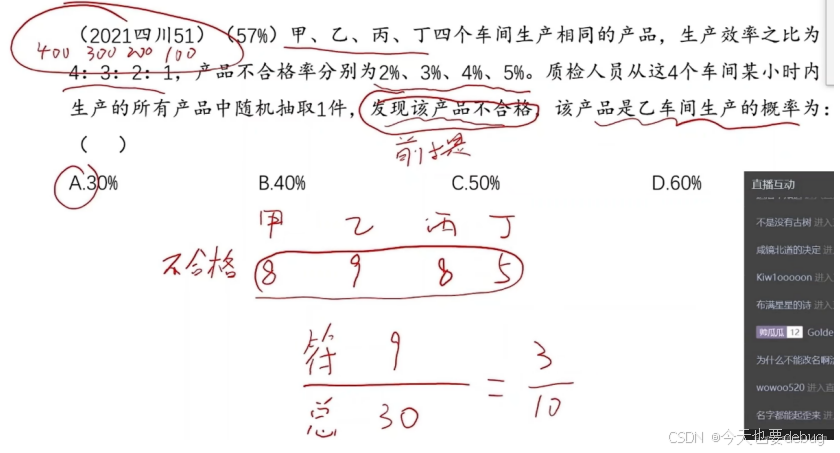 （2021四川51）（57%）甲、乙、丙、丁四个车间生产相同的产品，生产效率之比为
400 300 200 100
4：3：2：1，产品不合格率分别为2%、3%、4%、5%。质检人员从这4个车间某小时内
生产的所有产品中随机抽取1件，发现该产品不合格，该产品是乙车间生产的概率为：
（ ）
前提
A.30% B.40% C.50% D.60%
甲 乙 丙 丁
不合格 8 9 8 5
符 9
总 30
= 3
10
直播互动
不是没有古树 进入
咸镜北道的决定 进入
Kiw1ooooon 进入
布满星星的诗 进入
帅瓜瓜 12 Golde
为什么不能改名啊
wowoo520 进入直
名字都能起歪来 进入
CSDN @今天也要debug!